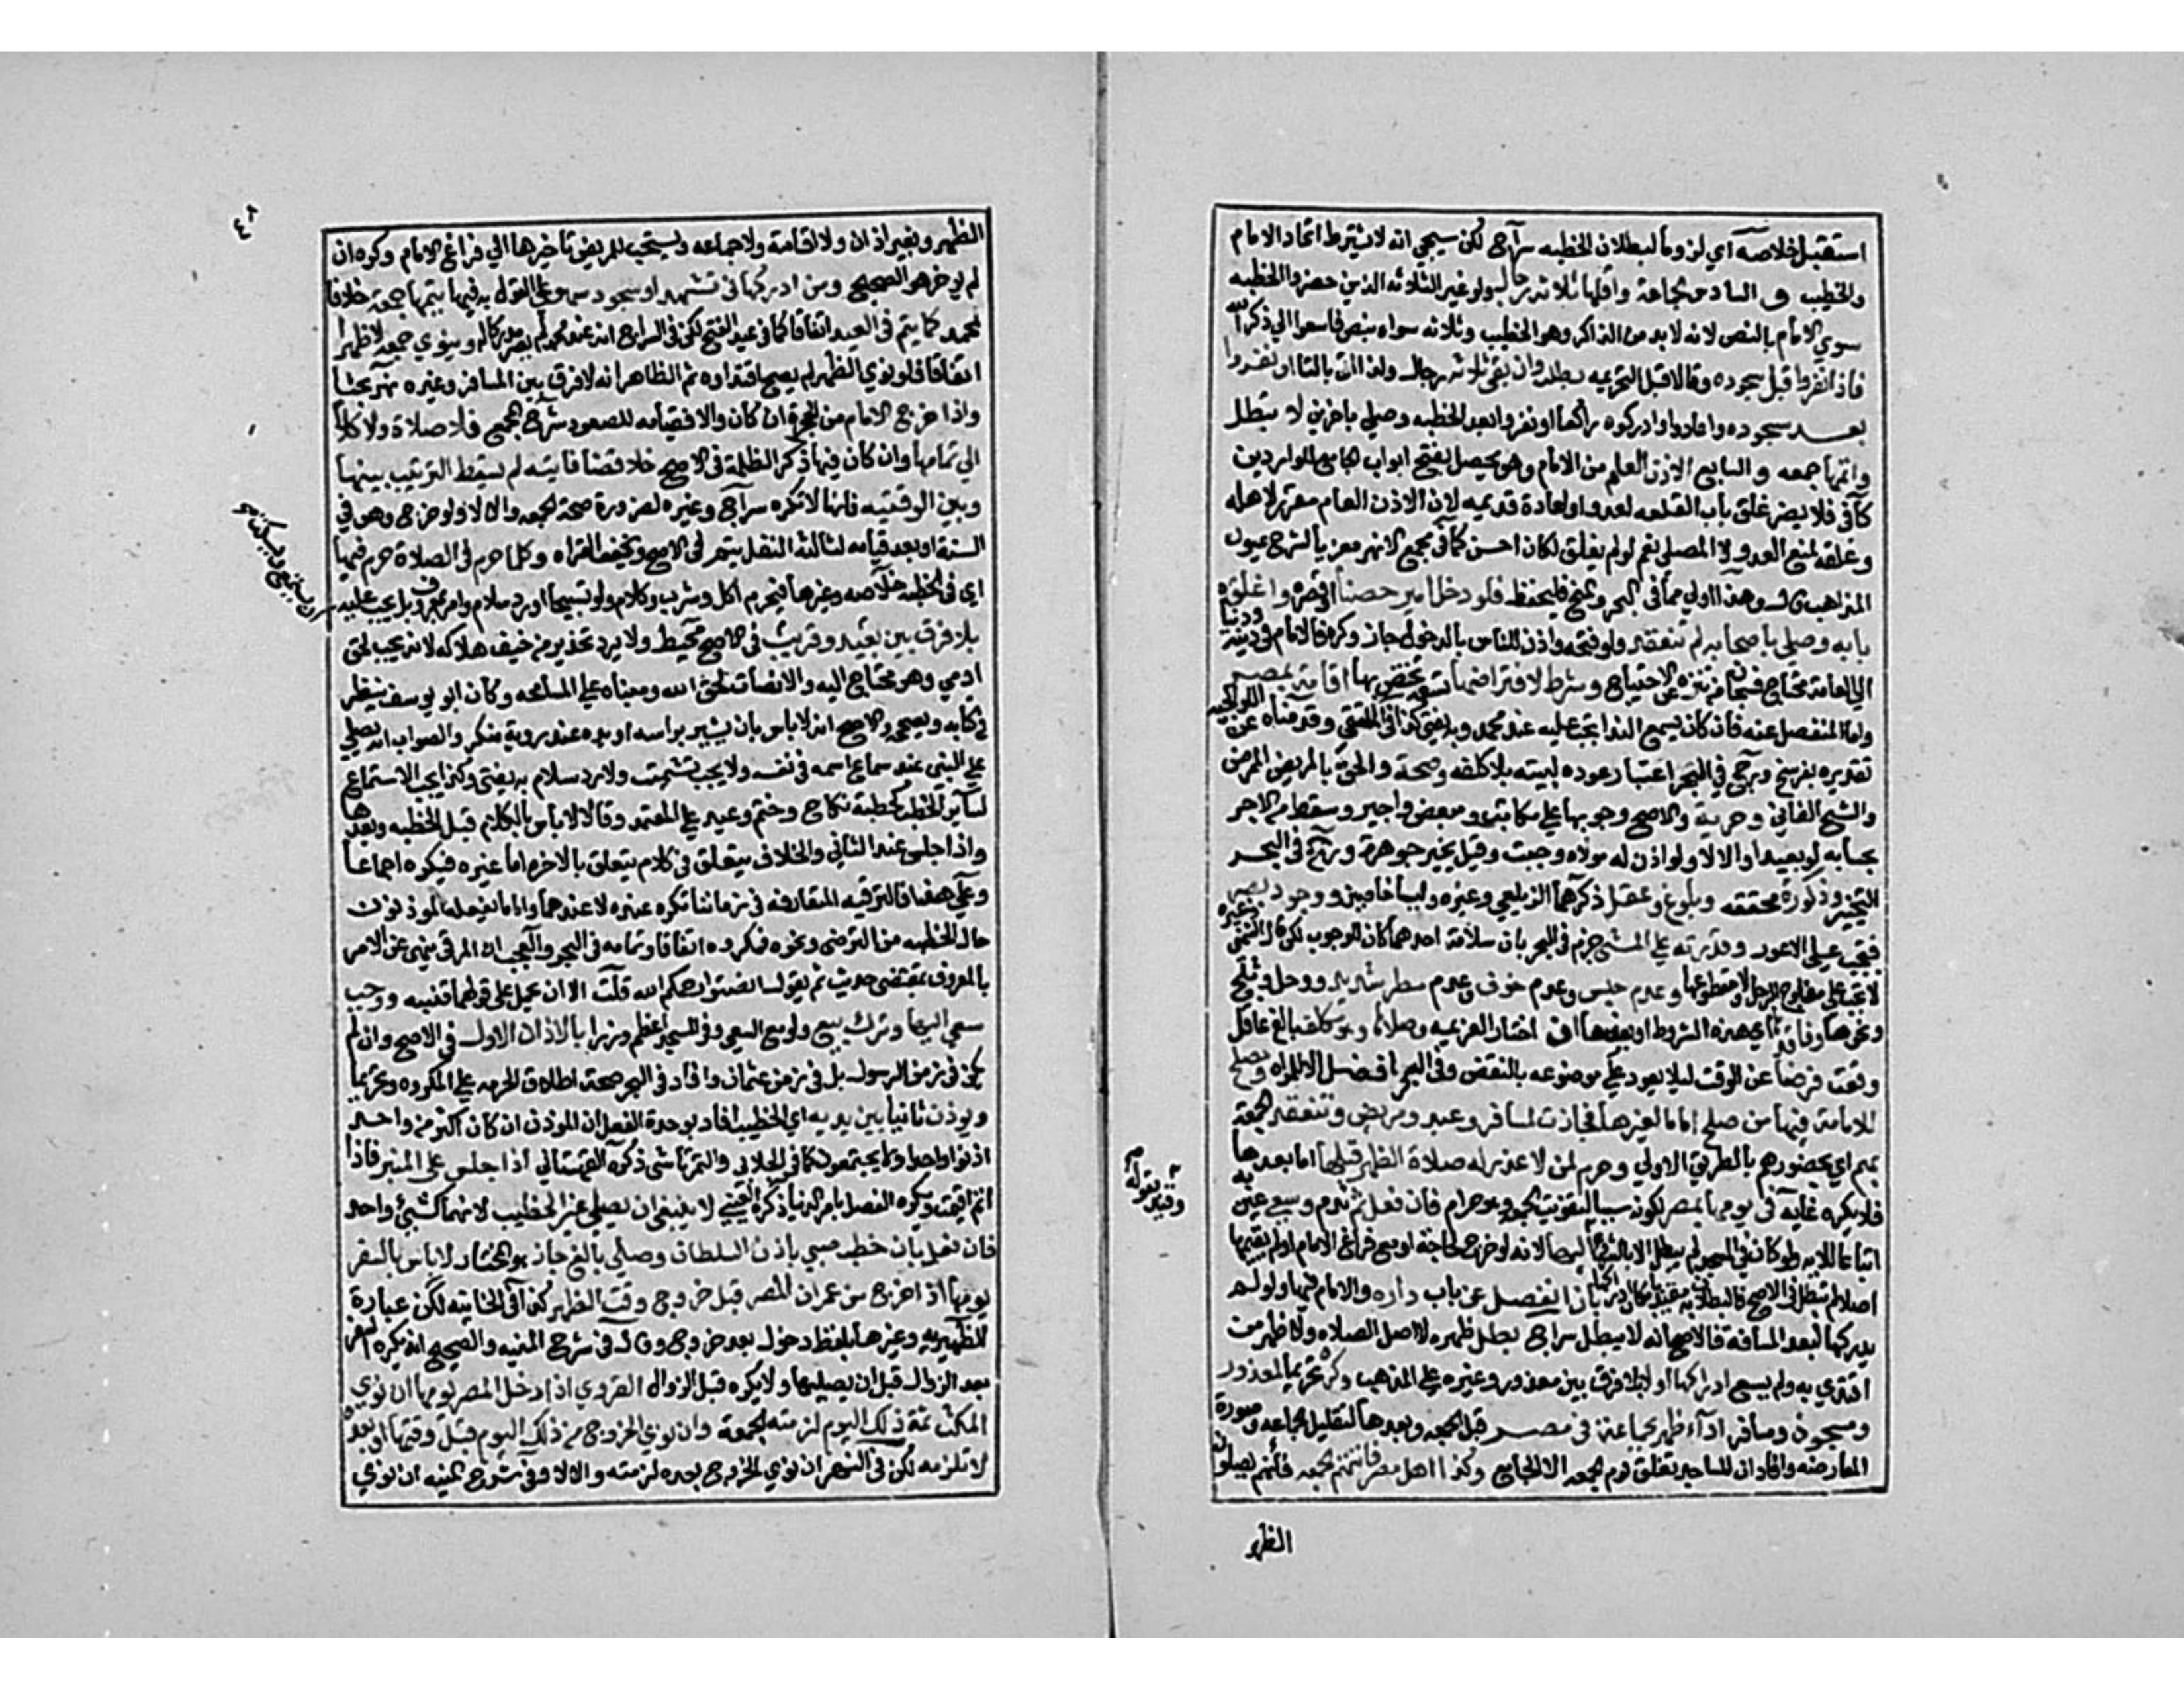 استقبل خلاصه اي لزوما لبطلان الخطبه سراج لكن سيجي انه لا يشترط اتحاد الامام
والخطيب و السادس الجماعة واقلها ثلاثة رجال ولو غير الثلاثه الذين حضروا الخطبه
سوي الامام بالنص لانه لا بد من الذاكر وهو الخطيب وثلاثه سواه بنص فاسعوا الي ذكر الله
فاذا نفروا قبل سجوده وقالا قبل التحريمه بطلت وان بقي ثلاثة رجال ولذا اتي بالتا او نفروا
بعد سجوده وعادوا وادركوه راكعا او نفروا بعد الخطبه وصلي باخرين لا تبطل
واتمها جمعه و السابع الاذن العام من الامام وهو يحصل بفتح ابواب الجامع للواردين
كافي فلا يضر غلق باب القلعه لعدو او لعادة قديمه لان الاذن العام مقرر لاهله
وغلقه لمنع العدو لا المصلي نعم لو لم يغلق لكان احسن كما في مجمع الانهر معزيا لشرح عيون
المذاهب قال وهذا اولي مما في البحر والمنح فليحفظ فلو دخل امير حصنا او قصره واغلق
بابه وصلي باصحابه لم تنعقد ولو فتحه واذن للناس بالدخول جاز وكره فالامام في دينه ودنياه
الي العامة محتاج فسبحان من تنزه عن الاحتياج وشرط لافتراضها تسعه تختص بها اقامة بمصر
واما المنفصل عنه فان كان يسمع الندا تجب عليه عند محمد وبه يفتي كذا في الملتقي وقدمناه عن الولوالجيه
تقديره بفرسخ ورجح في البحر اعتبار عوده لبيته بلا كلفه وصحة والحق بالمريض الممرض
والشيخ الفاني وحرية والاصح وجوبها علي مكاتب ومبعض واجير وسقط من الاجر
بحسابه لو بعيدا والا لا ولو اذن له مولاه وجبت وقيل يخير جوهرة ورجح في البحر
التخيير وذكورة محققه وبلوغ وعقل ذكرهما الزيلعي وغيره وليسا خاصين ووجود بصر
فتجب علي الاعور وقدرته علي المشي جزم في البحر بان سلامة احدهما كاف للوجوب لكن قال الشمني وغيره
لا تجب علي مفلوج الرجل او مقطوعها وعدم حبس وعدم خوف وعدم مطر شديد ووحل وثلج
ونحوهما وفاقدها اي هذه الشروط او بعضها ان اختار العزيمه وصلاها وهو مكلف بالغ عاقل
وقعت فرضا عن الوقت ليلا يعود علي موضوعه بالنقض وفي البحر افضل الا للمراه ويصلح
للامامة فيها من صلح اماما لغيرها فجازت لمسافر وعبد ومريض وتنعقد الجمعة
بهم اي بحضورهم بالطريق الاولي وحرم لمن لا عذر له صلاة الظهر قبلها اما بعدها
فلا يكره غايه في يومها بمصر لكونه سببا لتفويت الجمعه وهو حرام فان فعل ثم ندم وسعي عبر به
اتباعا للايه ولو كان في المسجد لم يبطل الا بالشروع اليها لانه لو خرج لحاجة او مع فراغ الامام او لم يقمها
وقيد بقوله
اصلا لم تبطل في الاصح فالبطلان به مقيد بامكان ادراكها بان انفصل عن باب داره والامام فيها ولو لم
يدركها لبعد المسافة فالاصح انه لا يبطل سراج بطل ظهره لا اصل الصلاه ولا ظهر من
اقتدي به ولم يسع ادراكها او لا بلا فرق بين معذور وغيره علي المذهب وكره تحريما لمعذور
ومسجون ومسافر اداء ظهر بجماعة في مصر قبل الجمعه وبعدها لتقليل الجماعه وصورة
المعارضه وافاد ان المساجد تغلق يوم الجمعه الا الجامع وكذا اهل مصر فاتتهم الجمعه فانهم يصلون
الظهر
الظهر وبغير اذان ولا اقامة ولا جماعه ويستحب للمريض تاخيرها الي فراغ الامام وكره ان
لم يوخر هو الصحيح ومن ادركها في تشهد او سجود سهو علي القول به فيها يتمها جمعة خلافا
لمحمد كما يتم في العيد اتفاقا كما في عيد الفتح لكن في السراج انه عند محمد لم يصر مدركا له وينوي جمعه لا ظهرا
اتفاقا فلو نوي الظهر لم يصح اقتداوه ثم الظاهر انه لا فرق بين المسافر وغيره نهر بحثا
واذا خرج الامام من الحجرة ان كان والا فقيامه للصعود شرح المجمع فلا صلاة ولا كلام
الي تمامها وان كان فيها ذكر الظلمة في الاصح خلا قضا فايته لم يسقط الترتيب بينها
وبين الوقتيه فانها لا تكره سراج وغيره لضرورة صحة الجمعه والا لا ولو خرج وهو في
السنة او بعد قيامه لثالثة النفل يتم في الاصح ويخفف القراه وكلما حرم في الصلاة حرم فيها
اي في الخطبه خلاصه وغيرها فيحرم اكل وشرب وكلام ولو تسبيحا او رد سلام وامر بمعروف بل يجب عليه
ان يستمع ويسكت
بلا فرق بين بعيد وقريب في الاصح محيط ولا يرد تحذير من خيف هلاكه لانه يجب لحق
ادمي وهو محتاج اليه والانصات لحق الله ومبناه علي المسامحه وكان ابو يوسف ينظر
في كتابه ويصححه والاصح انه لا باس بان يشير براسه او يده عند روية منكر والصواب انه يصلي
علي النبي عند سماع اسمه في نفسه ولا يجب تشميت ولا رد سلام به يفتي وكذا يجب الاستماع
لساير الخطب كخطبة نكاح وختم وعيد علي المعتمد وقالا لا باس بالكلام قبل الخطبه وبعدها
واذا جلس عند الثاني والخلاف يتعلق في كلام يتعلق بالاخره اما غيره فيكره اجماعا
وعلي هذا فالترقيه المتعارفه في زماننا تكره عنده لا عندهما واما ما يفعله الموذنون
حال الخطبه من الترضي ونحوه فمكروه اتفاقا وتمامه في البحر والعجب ان المرقي ينهي عن الامر
بالمعروف بمقتضي حديث ثم يقول انصتوا رحمكم الله قلت الا ان يحمل علي قولهما فتنبه ووجب
سعي اليها وترك بيع ولو مع السعي وفي المسجد اعظم وزرا بالاذان الاول في الاصح وان لم
يكن في زمن الرسول بل في زمن عثمان وافاد في البحر صحة اطلاق الحرمه علي المكروه تحريما
ويوذن ثانيا بين يديه اي الخطيب افاد بوحدة الفعل ان الموذن ان كان اكثر من واحد
اذنوا واحدا بعد واحد ولا يجتمعون كما في الجلابي والتمرتاشي ذكره القهستاني اذا جلس علي المنبر فاذا
اتم اقيمت ويكره الفصل بامر الدنيا ذكره العيني لا ينبغي ان يصلي غير الخطيب لانهما كشيء واحد
فان فعل بان خطب صبي باذن السلطان وصلي بالغ جاز هو المختار لا باس بالسفر
يومها اذا خرج من عمران المصر قبل خروج وقت الظهر كذا في الخانيه لكن عبارة
الظهيريه وغيرها بلفظ دخول بدل خروج وقال في شرح المنيه والصحيح انه يكره السفر
بعد الزوال قبل ان يصليها ولا يكره قبل الزوال القروي اذا دخل المصر يومها ان نوي
المكث ثمة ذلك اليوم لزمته الجمعة وان نوي الخروج من ذلك اليوم قبل وقتها او بعده
لا تلزمه لكن في النهر ان نوي الخروج بعده لزمته والا لا وفي شرح المنيه ان نوي